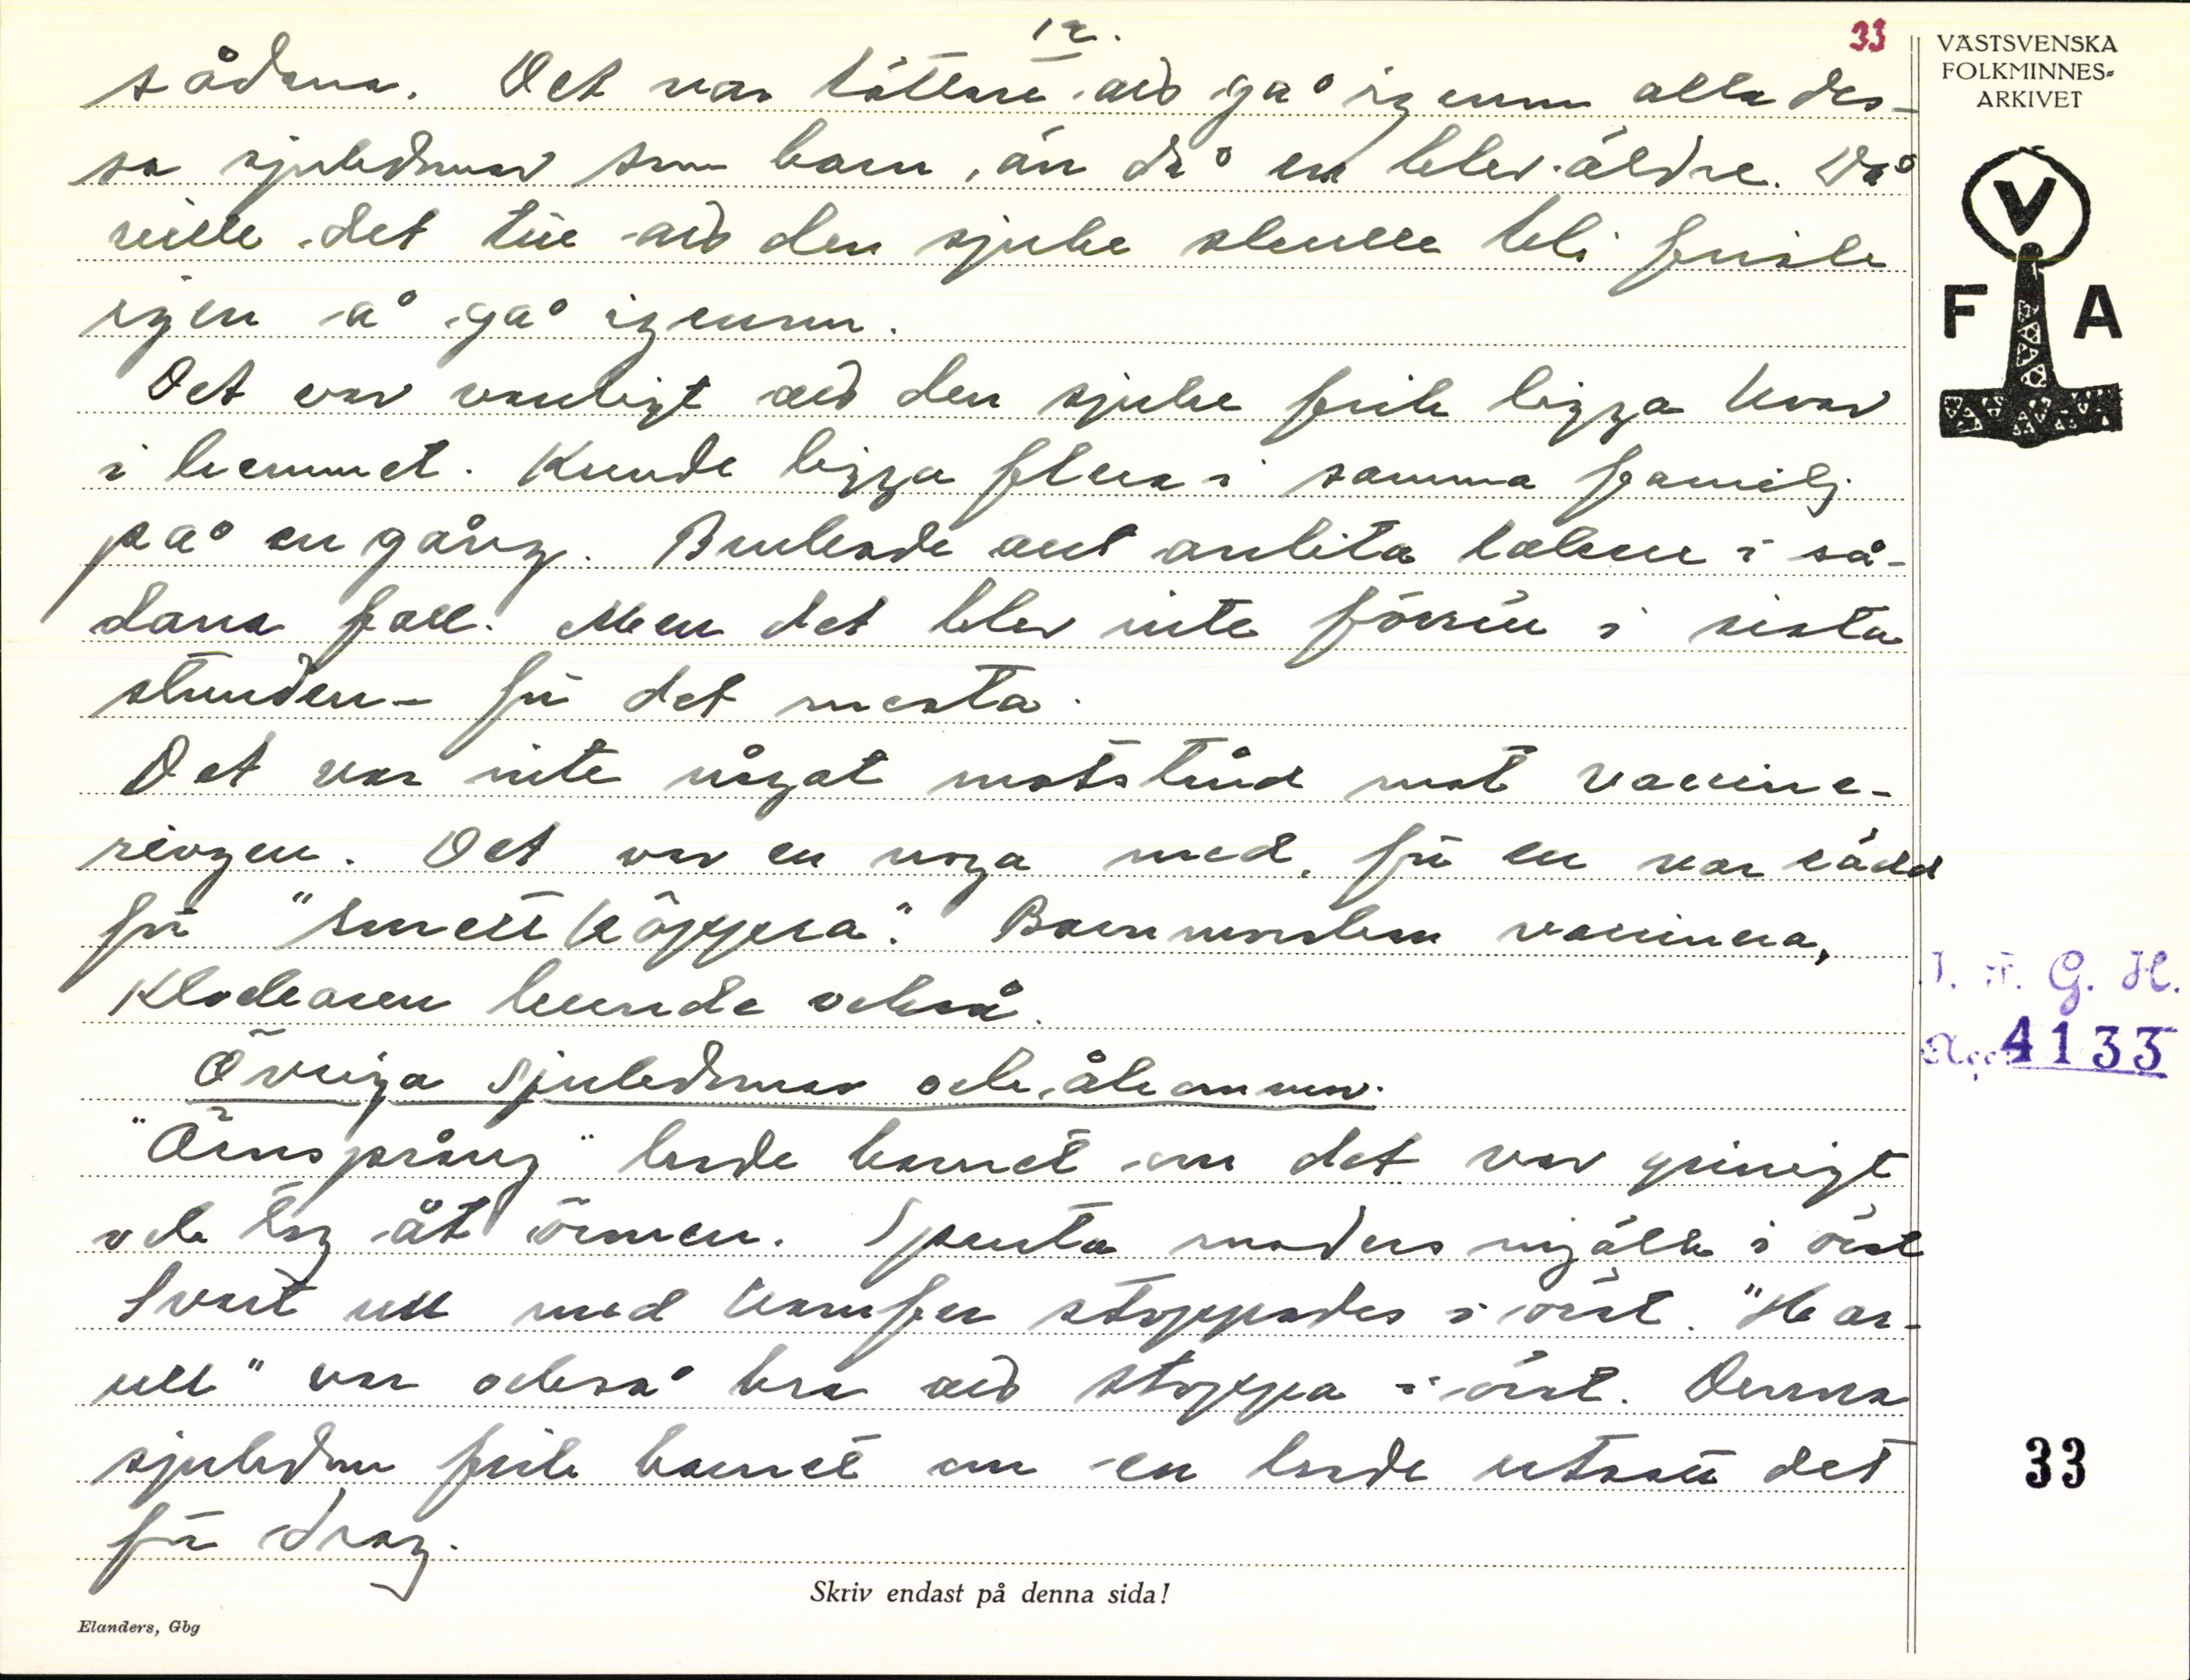 12.
33
sådana. Det var lättare att gå igenom alla des-
sa sjukdomar som barn, än då en blev äldre. Då
ville det till att den sjuke skulle bli frisk
igen å gå igenom.
Det var vanligt att den sjuke fick ligga kvar
i hemmet. Kunde ligga flera i samma familj
på en gång. Brukade att anlita läkare i så-
dana fall. Men det blev inte förrän i sista
stunden - för det mesta.
Det var inte något motstånd mot vaccine-
ringen. Det var en noga med, för en var rädd
för "smettköppera". Barnmorskan vaccinera,
Klockaren kunde också.
Övriga sjukdomar och åkommor.
"Örnsprång" hade barnet om det var grinigt
och tog åt örmen. Spruta modersmjölk i örat
Svart ull med kamfer stoppades i örat. "Har-
ull" var också bra att stoppa i örat. Denna
sjukdom fick barnet om en hade utsatt det
för drag.
Skriv endast på denna sida!
Elanders, Gbg
VÄSTSVENSKA
FOLKMINNES-
ARKIVET
V
F A
I. F. G. H.
Acc. 4133
33